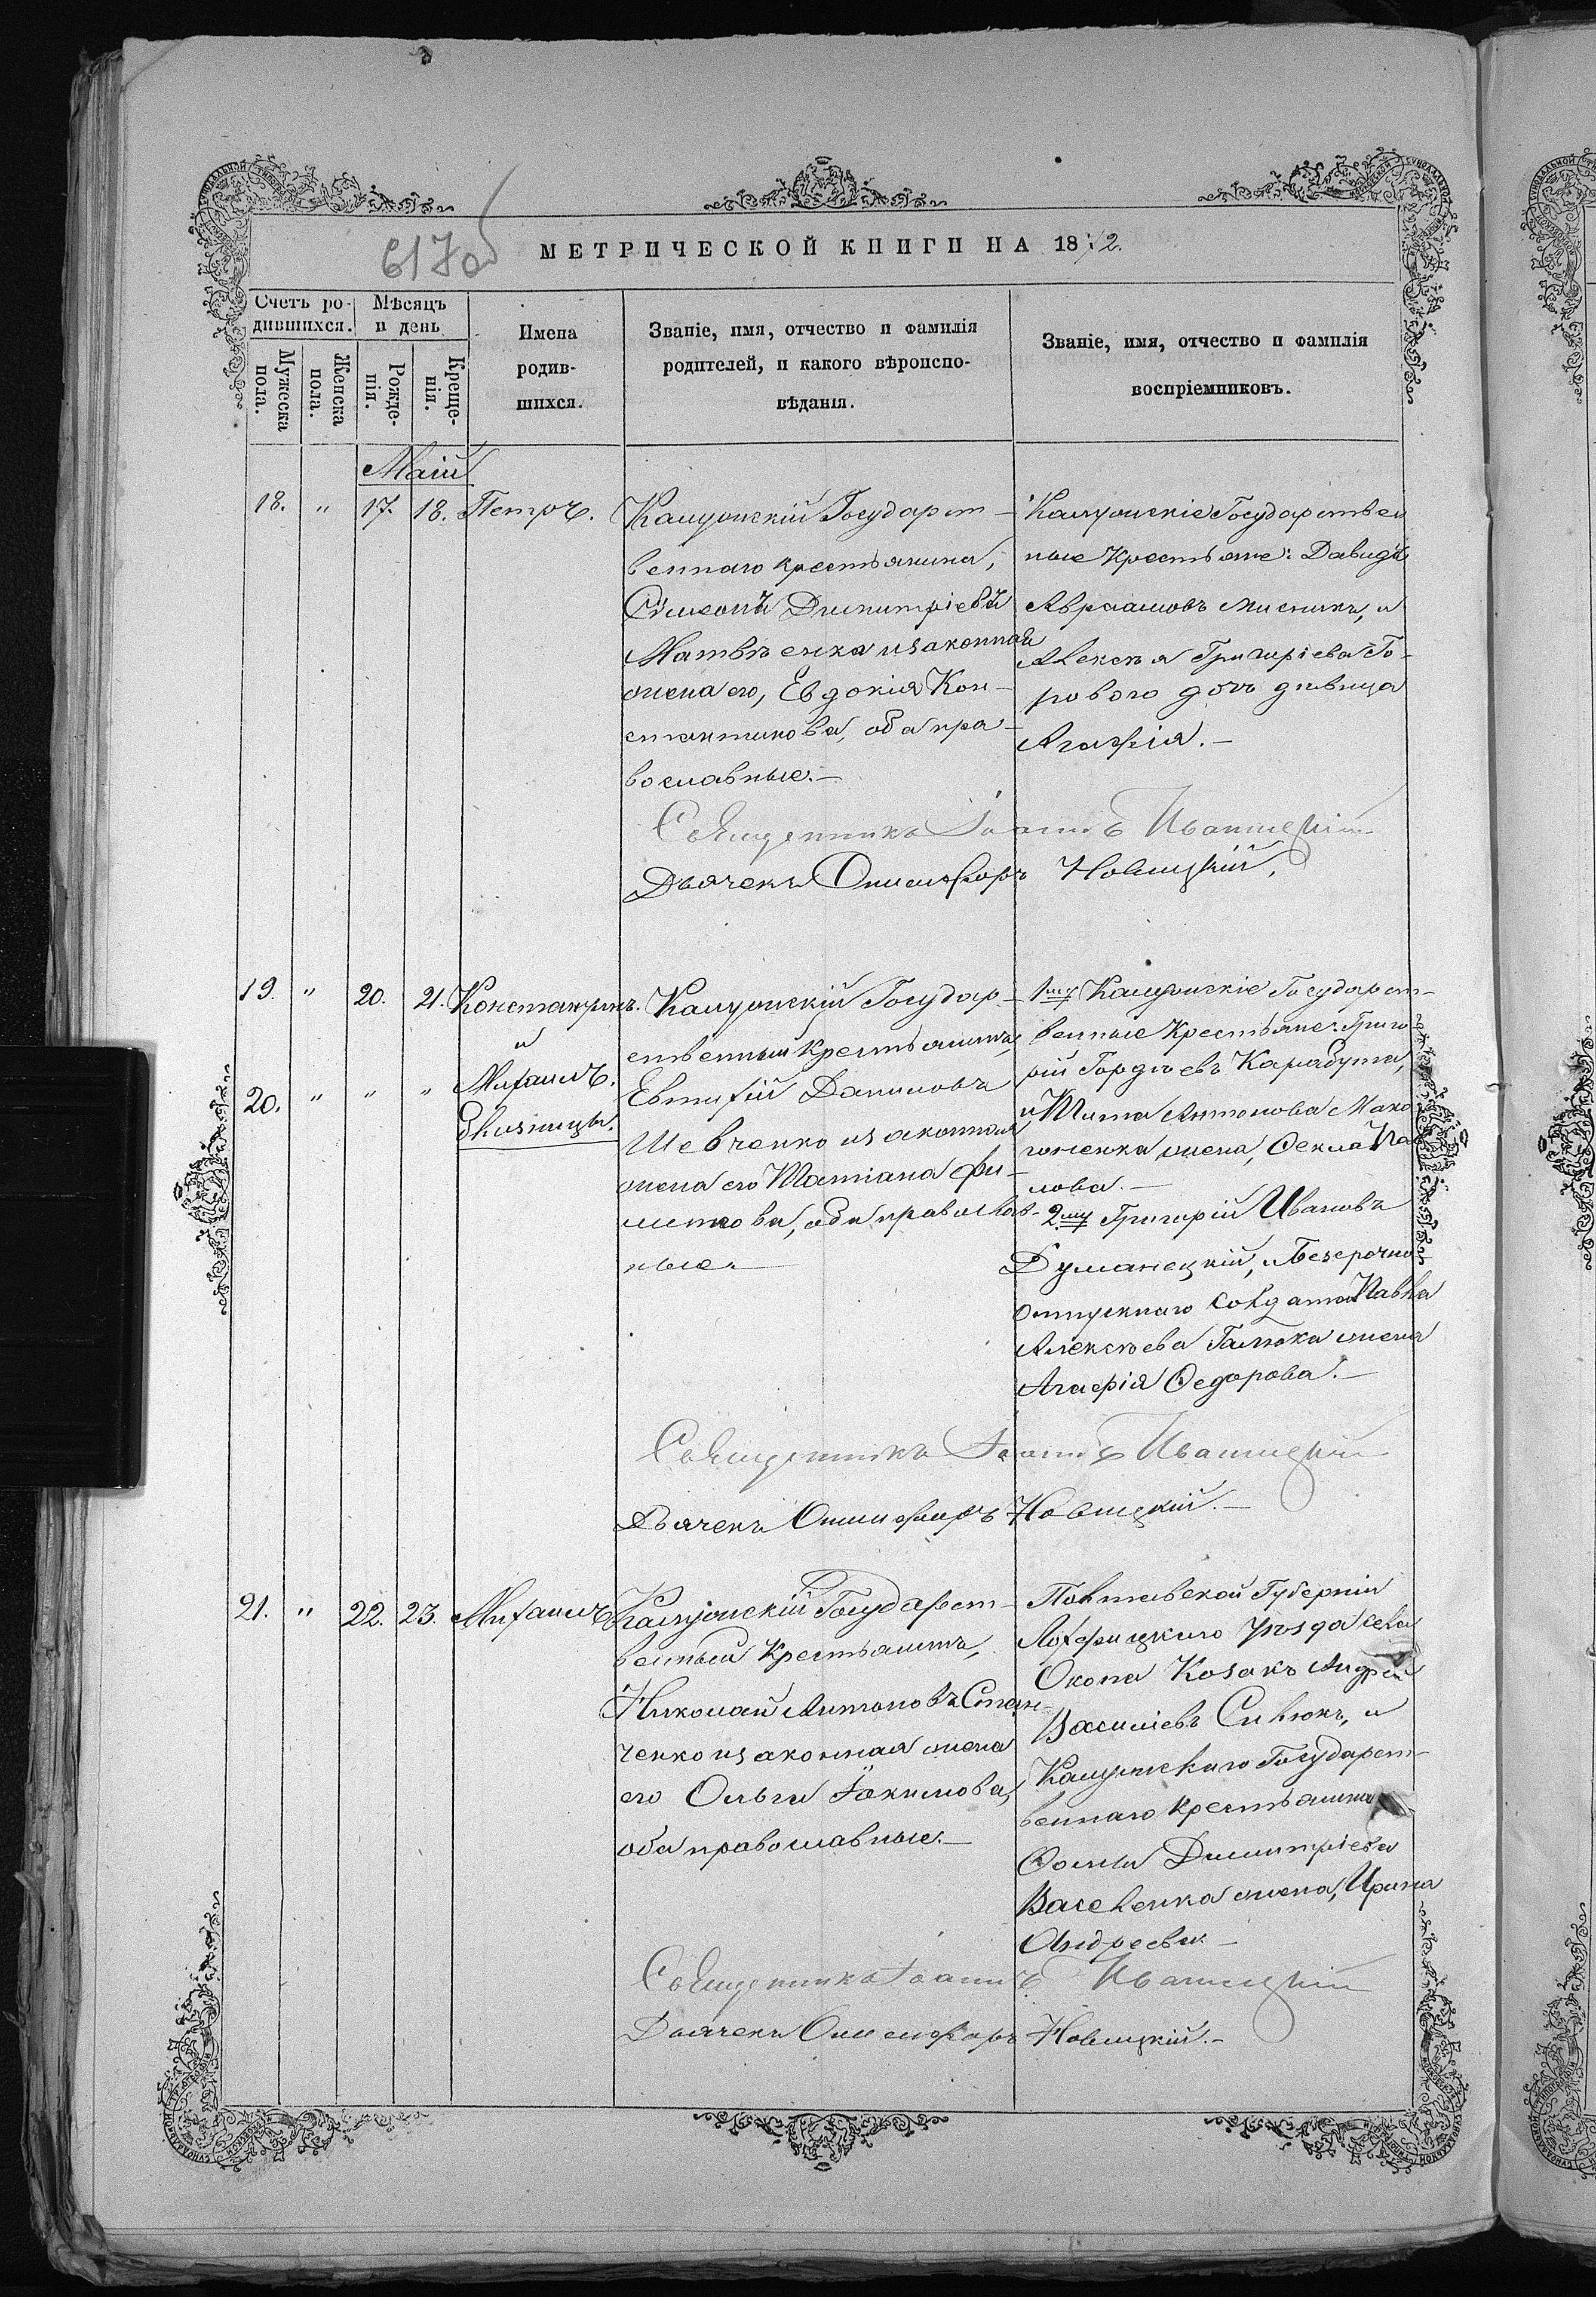 617об
МЕТРИЧЕСКОЙ КНИГИ НА 1872.
Счетъ ро-
дившихся.
Мѣсяцъ
и день
Мужеска
пола.
Женска
пола.
Рожде-
нія.
Креще-
нія.
Имена
родив-
шихся.
Званіе, имя, отчество и фамилія
родителей, и какого вѣроиспо-
вѣданія.
Званіе, имя, отчество и фамилія
воспріемниковъ.
Маій
18. " 17. 18. Петръ.
Государст-
веннаго крестьянина,
Сѵмеонъ Димитріевъ
Матвѣенка и законная
жена его, Евдокія Кон-
стантинова, оба пра-
вославные.—
Государствен
ные Крестьяне: Давидъ
Авраамовъ Мисникъ, и
Алексѣя Григоріева Го-
рового дочь дѣвица
Агафія.—
Священникъ Іоаннъ Иваницкій
Дьячекъ Онисифоръ Новицкій.
19. " 20. 21. Константинъ.
и
20. " " " Михаилъ.
Близницы.
Государ-
ственный Крестьянинъ,
Евтихій Даниловъ
Шевченко и законная
жена его Татіана Фи-
липова, оба православ-
ные.—
1му Государст-
венные Крестьяне: Григо
рій Гордѣевъ Карабута,
и Тита Антонова Мако
гоненка жена, Ѳекла Па
лова.—
2му Григорій Ивановъ
Думанецкій, и Безсрочно
отпускнаго Солдата Павла
Алексѣева жена
Агафія Ѳедорова.—
Священникъ Іоаннъ Иваницкій
Дьячекъ Онисифоръ Новицкій.—
21. " 22. 23. Михаилъ
Государст-
венный Крестьянинъ,
Николай Антоновъ Степан-
ченко и законная жена
его Ольга Іакимова,
оба православные.—
Полтавской Губерніи
Лохвицкаго уѣзда села
Окопа Козакъ Андрей
Василіевъ Силюкъ, и
Государст-
веннаго Крестьянина
Ѳомы Димитріева
Василенка жена, Ирина
Андреева.—
Священникъ Іоаннъ Иваницкій
Дьячекъ Онисифоръ Новицкій.—